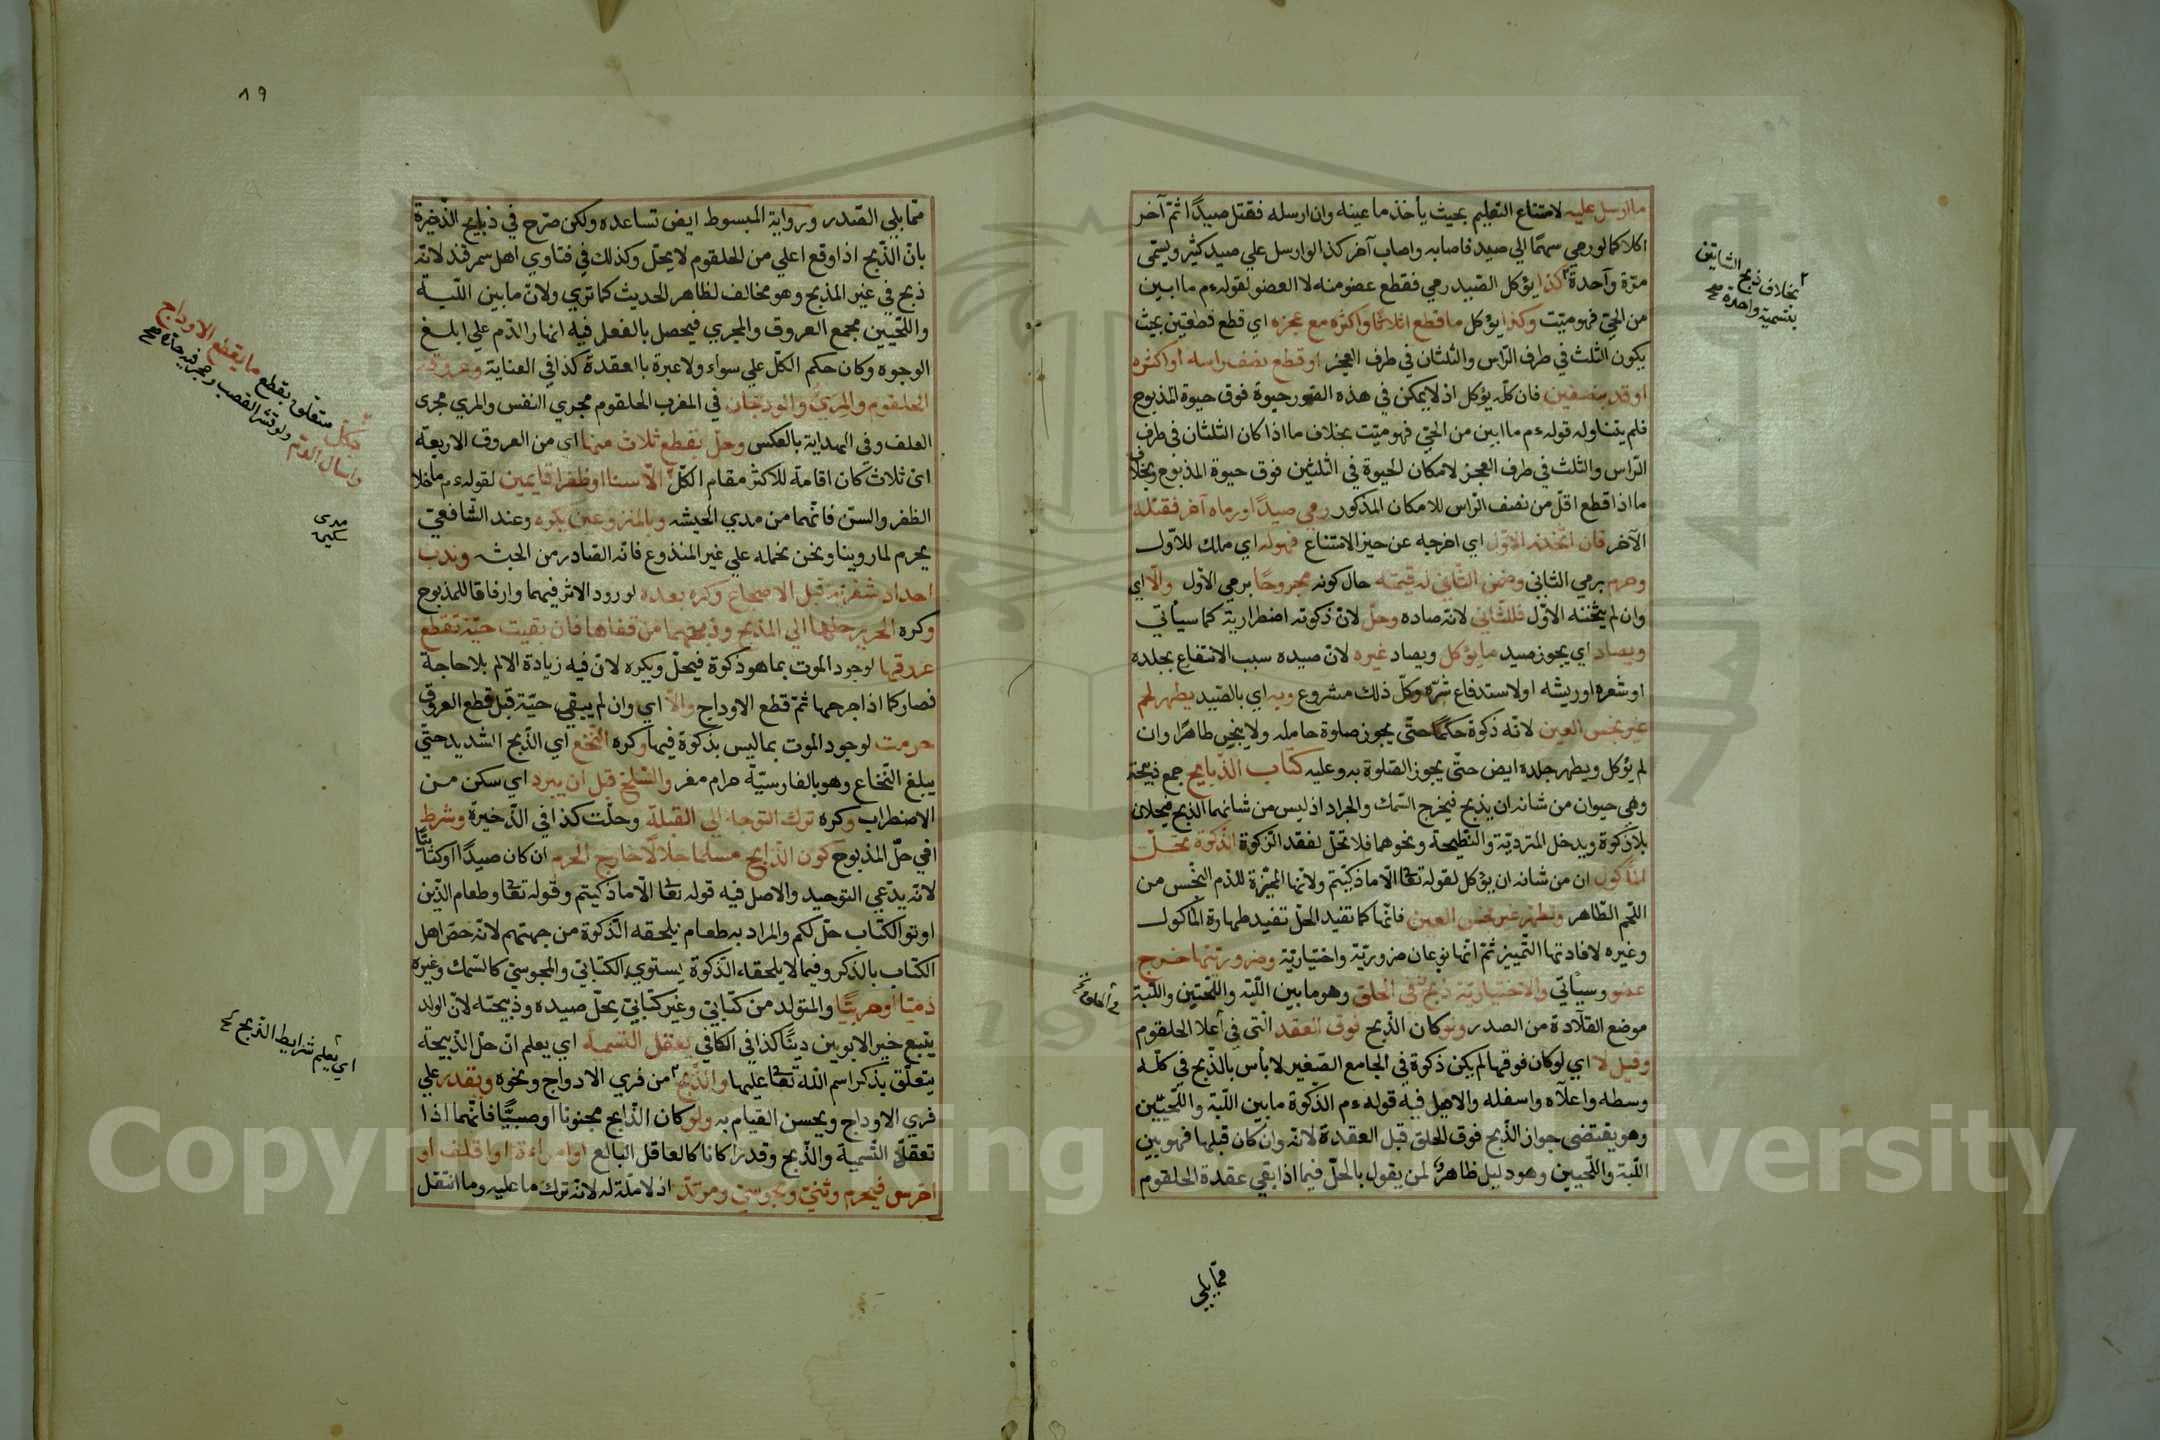 ما ارسل عليه لامتناع التعليم بحيث يأخذ ما عينه وان ارسله فقتل صيدًا ثمّ آخر
اكلا كما لو رمي سهمًا الي صيد فاصابه واصاب آخر كذا لو ارسل علي صيد كثير ويسمّى
مرّة وآحدةً كذا يؤكل الصّيد رمي فقطع عضو منه لا العضو لقوله ءم ما ابين
من الحيّ فهو ميّت وكذا يؤكل ما قطع اثلاثًا واكثره مع عجزه اي قطع قطعتين بحيث
يكون الثّلث في طرف الرّاس والثّلثان في طرف العجز او قطع نصف راسه او اكثره
او قدّ بنصفين فان كلّه يؤكل اذ لا يمكن في هذه الصّور حيوة فوق حيوة المذبوح
فلم يتناوله قوله ءم ما ابين من الحيّ فهو ميّت بخلاف ما اذا كان الثلثان في طرف
الرّاس والثلث في طرف العجز لامكان الحيوة في الثلثين فوق حيوة المذبوح وبخلاف
ما اذا قطع اقلّ من نصف الرّاس للامكان المذكور رمي صيدًا ورماه آخر فقتله
الآخر فان اثخنه الاوّل اي اخرجه عن حيز الامتناع فهو له اي ملك للاوّل
وحرم برمي الثاني وضمن الثّاني له قيمته حال كونه مجروحًا برمي الاوّل والّا اي
وان لم يثخنه الاوّل فللثّاني لانّه صاده وحلّ لانّ ذكوته اضطرارية كما سيأتي
ويصاد اي يجوز صيد ما يؤكل ويصاد غيره لانّ صيده سبب الانتفاع بجلده
او شعره او ريشه او لاستدفاع شرّه وكلّ ذلك مشروع وبه اي بالصّيد يطهر لحم
غير نجس العين لانّه ذكوة حكمًا حتّى يجوز صلوة حامله ولا ينجس طاهرًا وان
لم يؤكل ويطهر جلده ايض حتّى يجوز الصّلوة به وعليه كتاب الذّبايح جمع ذبيحة
وهي حيوان من شانه ان يذبح فيخرج السّمك والجراد اذ ليس من شانهما الذبح فيحلان
بلا ذكوة ويدخل المتردّية والنّطيحة ونحوهما فلا تحلّ لفقد الذّكوة الذّكوة تحلّ
المأكول ان من شانه ان يؤكل لقوله تعا الّا ما ذكيّتم ولانّها المميّزة للدّم النّجس من
اللّحم الطّاهر وتطهّر غير نجس العين فانّها كما تفيد الحلّ تفيد طهارة المأكول
وغيره لافادتها التّمييز ثمّ انّها نوعان ضروريّة واختياريّة وضروريّتها جرح
عضو وسيأتي والاختياريّة ذبح في الحلق وهو ما بين اللّبّة واللّحيّين واللّبّة
موضع القلّادة من الصدر ولو كان الذّبح فوق العقد الّتي في اعلا الحلقوم
وقيل لا اي لو كان فوقها لم يكن ذكوة في الجامع الصّغير لا بأس بالذّبح في كلّه
وسطه واعلاه واسفله والاصل فيه قوله ءم الذّكوة ما بين اللّبّة واللّحيّين
وهو يقتضي جواز الذّبح فوق الحلق قبل العقدة لانّه وان كان قبلها فهو بين
اللّبّة واللّحيين وهو دليل ظاهر لمن يقول بالحلّ فيما اذا بقي عقدة الحلقوم
بخلاف ذبح الشاتين
بتسمية واحدة صح
ممّا يلي
٨٩
ممّا يلي الصّدر ورواية المبسوط ايض تساعده ولكن صرّح في ذبايح الذّخيرة
بانّ الذّبح اذا وقع اعلي من الحلقوم لا يحلّ وكذلك في فتاوي اهل سمرقند لانّه
ذبح في غير المذبح وهو مخالف لظاهر الحديث كما تري ولانّ ما بين اللّبّة
واللّحيين مجمع العروق والمجري فيحصل بالفعل فيه انهار الدّم علي ابلغ
الوجوه وكان حكم الكلّ علي سواء ولا عبرة بالعقدة كذا في العناية وعروقه
الحلقوم والمريّ والودجان في المغرب الحلقوم مجري النفس والمري مجرى
العلف وفي الهداية بالعكس وحلّ بقطع ثلاث منها اي من العروق الاربعة
ايّ ثلاث كان اقامة للاكثر مقام الكلّ الّا سنا او ظفرا قايمين لقوله ءم ما خلا
الظفر والسنّ فانّهما من مدي الحبشه وبالمنزوعين يكره وعند الشّافعيّ
يحرم لما روينا ونحن نحمله علي غير المنذوع فانّه الصّادر من الحبشه وندب
احداد شفرته قبل الاضجاع وكره بعده لورود الاثر فيهما وارفاقا للمذبوح
وكره الجرّ برجلها الي المذبح وذبحهما من قفاها فان بقيت حيّة تقطع
عروقها لوجود الموت بما هو ذكوة فيحلّ ويكره لانّ فيه زيادة الالم بلا حاجة
فصار كما اذا جرحها ثمّ قطع الاوداج والّا اي وان لم يبقي حيّة قبل قطع العروق
حرمت لوجود الموت بما ليس بذكوة فيها وكره النّخع اي الذّبح الشديد حتّي
يبلغ النّخاع وهو بالفارسيّة حرام مغز والسّلخ قبل ان يبرد اي سكن من
الاضطراب وكره ترك التوجه الي القبلة وحلّت كذا في الذّخيرة وشرط
في حلّ المذبوح كون الذّابح مسلما حلالًا خارج الحرم ان كان صيدًا او كتابيًّا
لانّه يدّعي التوحيد والاصل فيه قوله تعا الّا ما ذكيتم وقوله تعا وطعام الّذين
اوتو الكتاب حلّ لكم والمراد به طعام يلحقه الذّكوة من جهتهم لانّه خصّ اهل
الكتاب بالذكر وفيما لا يلحقه الذّكوة يستوي الكتابي والمجوسي كالسّمك وغيره
ذميّا او حربيّا والمتولد من كتابي وغير كتابيّ يحلّ صيده وذبيحته لانّ الولد
يتبع خير الابوين دينًا كذا في الكافي يعقل التسمية اي يعلم انّ حلّ الذّبيحة
يتعلّق بذكر اسم اللّه تعا عليها والذّبح من فري الاوداج ونحوه ويقدر علي
فري الاوداج ويحسن القيام به ولو كان الذّابح مجنونا او صبيًّا فانّهما اذا
تعقلا التّسمية والذّبح وقدرا كانا كالعاقل البالغ او امراءة او اقلف او
اخرس فيحرم وثنيّ ومجوسيّ ومرتدّ اذ لا ملّة له لانّه ترك ما عليه وما انتقل
متعلّق بقطع ما يقطع الاوداج
واسال الدّم ولو قشر القصب وحجر فيه حدّة صح
مدى
سكين
اي يعلم شرايط الذّبح
Copyright © King Saud University